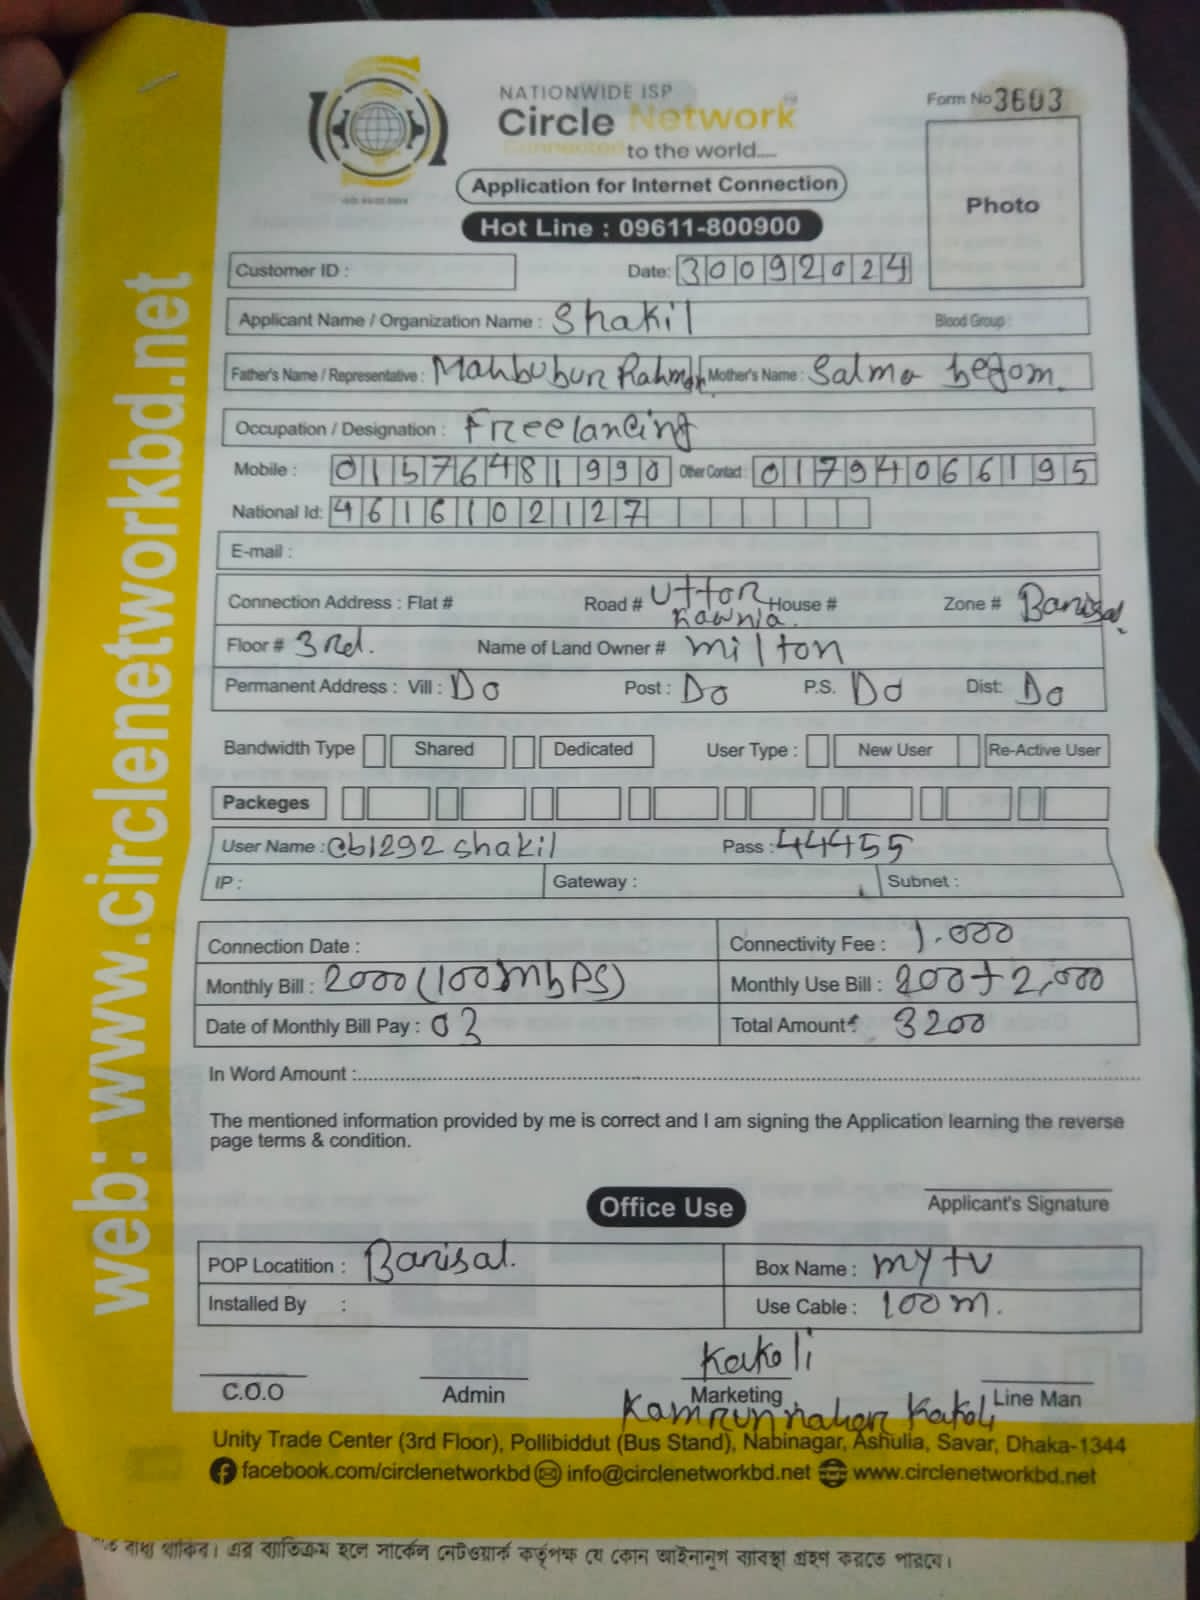 NATIONWIDE ISP
Circle Network
Connected to the world....
Form No 3603
Photo
Application for Internet Connection
Hot Line : 09611-800900
Customer ID :
Date: 30092024
Applicant Name / Organization Name : Shakil Blood Group :
Father's Name / Representative : Mahbubur Rahman Mother's Name : Salma begom.
Occupation / Designation : Freelancing
Mobile : 01576481990 Other Contact : 01794066195
National Id: 4616102127
E-mail :
Connection Address : Flat # Road # Uttor kawnia. House # Zone # Barisal.
Floor # 3rd. Name of Land Owner # milton
Permanent Address : Vill : Do Post : Do P.S. Do Dist: Do
Bandwidth Type Shared Dedicated User Type : New User Re-Active User
Packeges
User Name : cb1292 shakil Pass : 44455
IP : Gateway : Subnet :
Connection Date : Connectivity Fee : 1.000
Monthly Bill : 2000 (100mbps) Monthly Use Bill : 200+2,000
Date of Monthly Bill Pay : 03 Total Amount : 3200
In Word Amount :
The mentioned information provided by me is correct and I am signing the Application learning the reverse
page terms & condition.
Office Use
Applicant's Signature
POP Locatition : Barisal. Box Name : my tv
Installed By : Use Cable : 100m.
Kakoli
C.O.O Admin Marketing Line Man
Kamrun nahar Kakoli
Unity Trade Center (3rd Floor), Pollibiddut (Bus Stand), Nabinagar, Ashulia, Savar, Dhaka-1344
facebook.com/circlenetworkbd info@circlenetworkbd.net www.circlenetworkbd.net
web: www.circlenetworkbd.net
বাধ্য থাকিব। এর ব্যতিক্রম হলে সার্কেল নেটওয়ার্ক কর্তৃপক্ষ যে কোন আইনানুগ ব্যবস্থা গ্রহণ করতে পারবে।